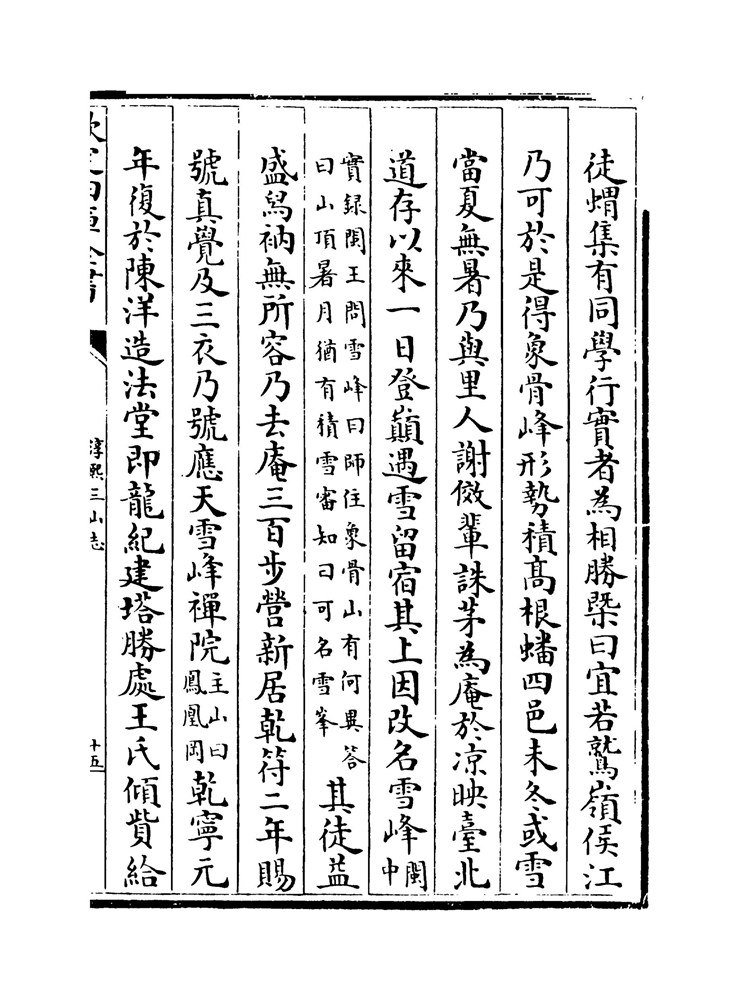 徒蝟集有同學行實者為相勝槩曰宜若鷲嶺侯江
乃可於是得象骨峰形勢積髙根蟠四邑未冬或雪
當夏無暑乃與里人謝儆輩誅茅為庵於凉映臺北
道存以來一日登巔遇雪留宿其上因改名雪峰閩中
實録閩王問雪峰曰師住象骨山有何異答
曰山頂暑月猶有積雪審知曰可名雪峯
其徒益
盛舄衲無所容乃去庵三百步營新居乾符二年賜
號真覺及三衣乃號應天雪峰禪院主山曰鳳凰岡乾寧元
年復於陳洋造法堂即龍紀建塔勝處王氏傾貲給
欽定四庫全書
淳熙三山志
十五